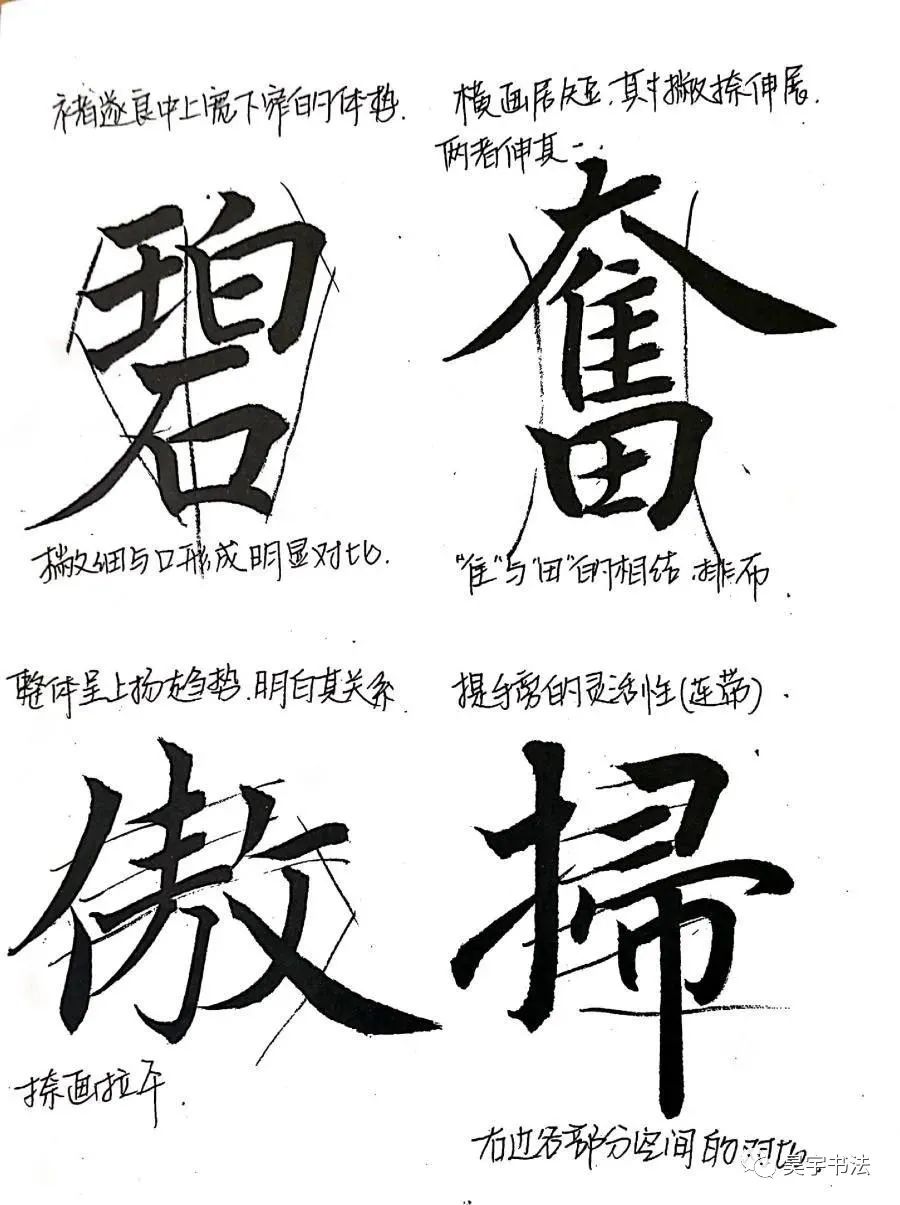 褚遂良中上宽下窄的体势.
碧
撇细与口形成明显对比.
横画居短,其中撇捺伸展.
两者伸其一.
奮
"隹"与"田"的相结.排布.
整体呈上扬趋势.明白其关系
傲
捺画拉平.
提手旁的灵活性(连带).
掃
右边各部分空间的对比.
昊宇书法